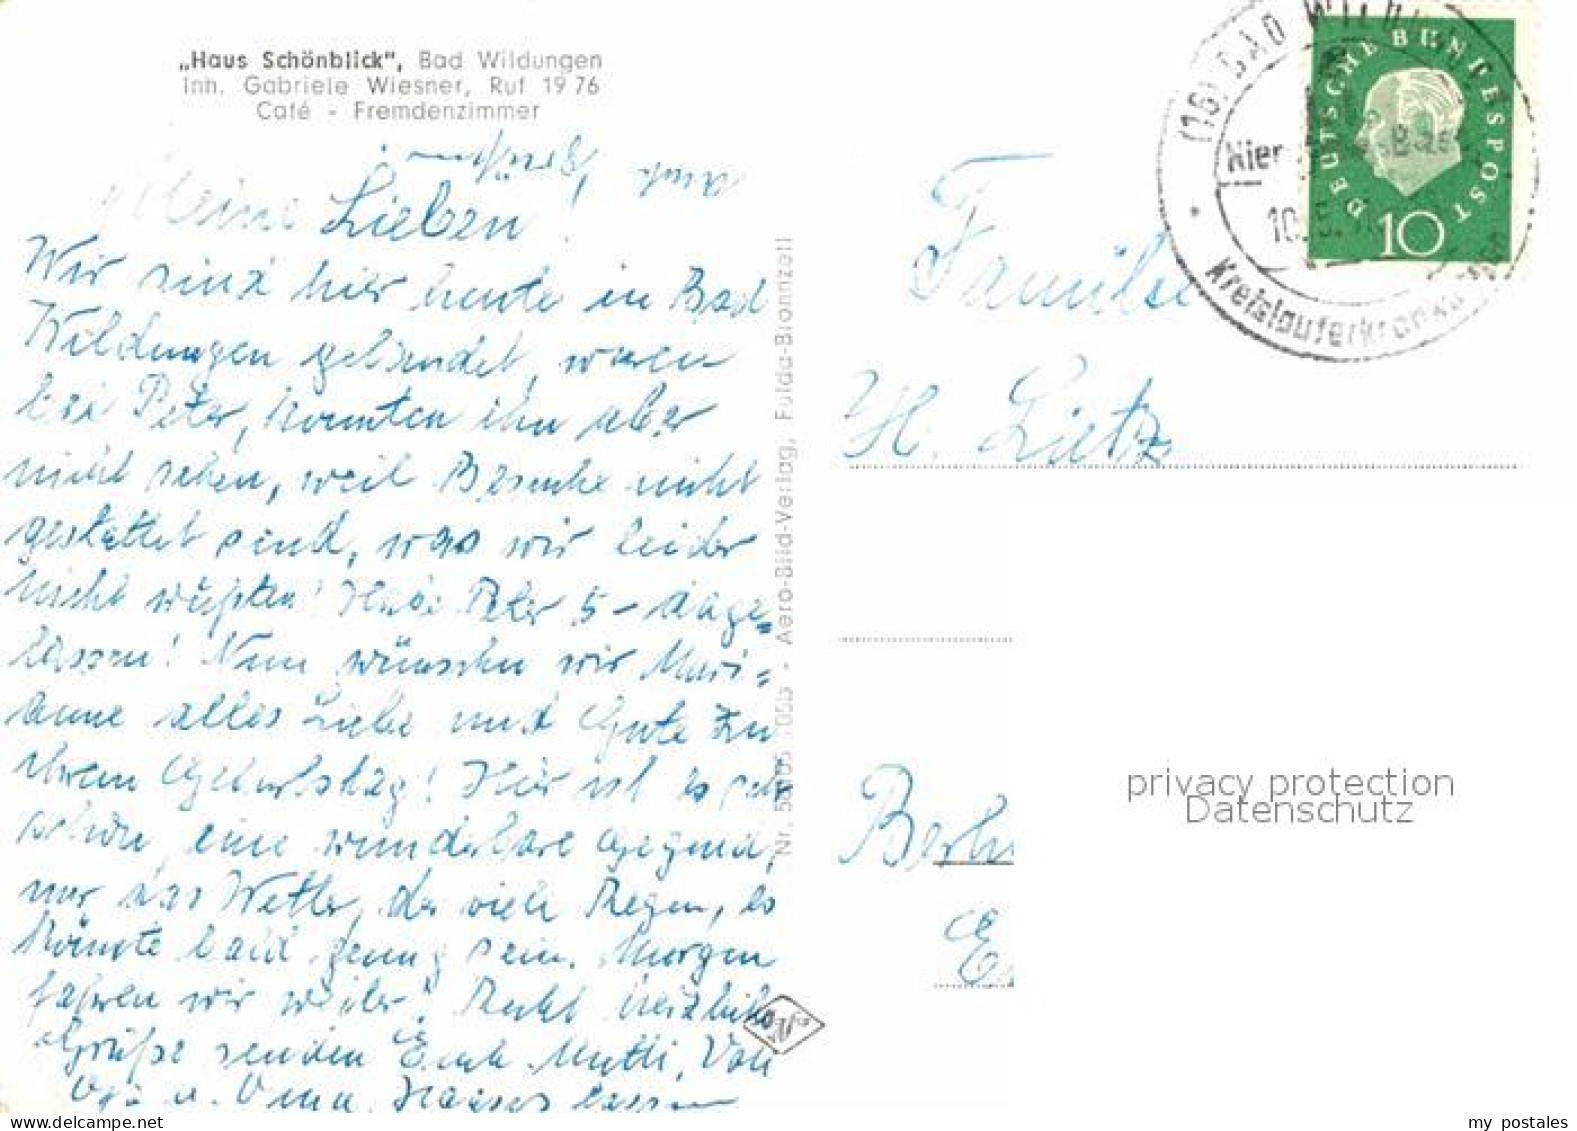 „Haus Schönblick", Bad Wildungen
Inh. Gabriele Wiesner, Ruf 19 76
Café - Fremdenzimmer
Meine Lieben!
Wir sind hier heute in Bad
Wildungen gelandet, waren
bei Peter, konnten ihn aber
nicht sehen, weil Besuche nicht
gestattet sind, was wir leider
nicht wußten! Habe Peter 5 - dage-
lassen! Nun wünschen wir Mari-
anne alles Liebe und Gute zu
ihrem Geburtstag! Hier ist es sehr
schön, eine wunderbare Gegend,
nur das Wetter, der viele Regen, es
könnte bald genug sein. Morgen
fahren wir weiter! Recht herzliche
Grüße senden Euch Mutti, Vati
Opa u. Oma. lassen
auch grüßen!
Nr. 1055 - Aero-Bild-Verlag, Fulda-Bronnzell
(16) BAD WILDUNGEN
Hier
Kreislauferkrank
DEUTSCHE BUNDESPOST
10
Familie
H. Lietz
Berlin
privacy protection
Datenschutz
my postales